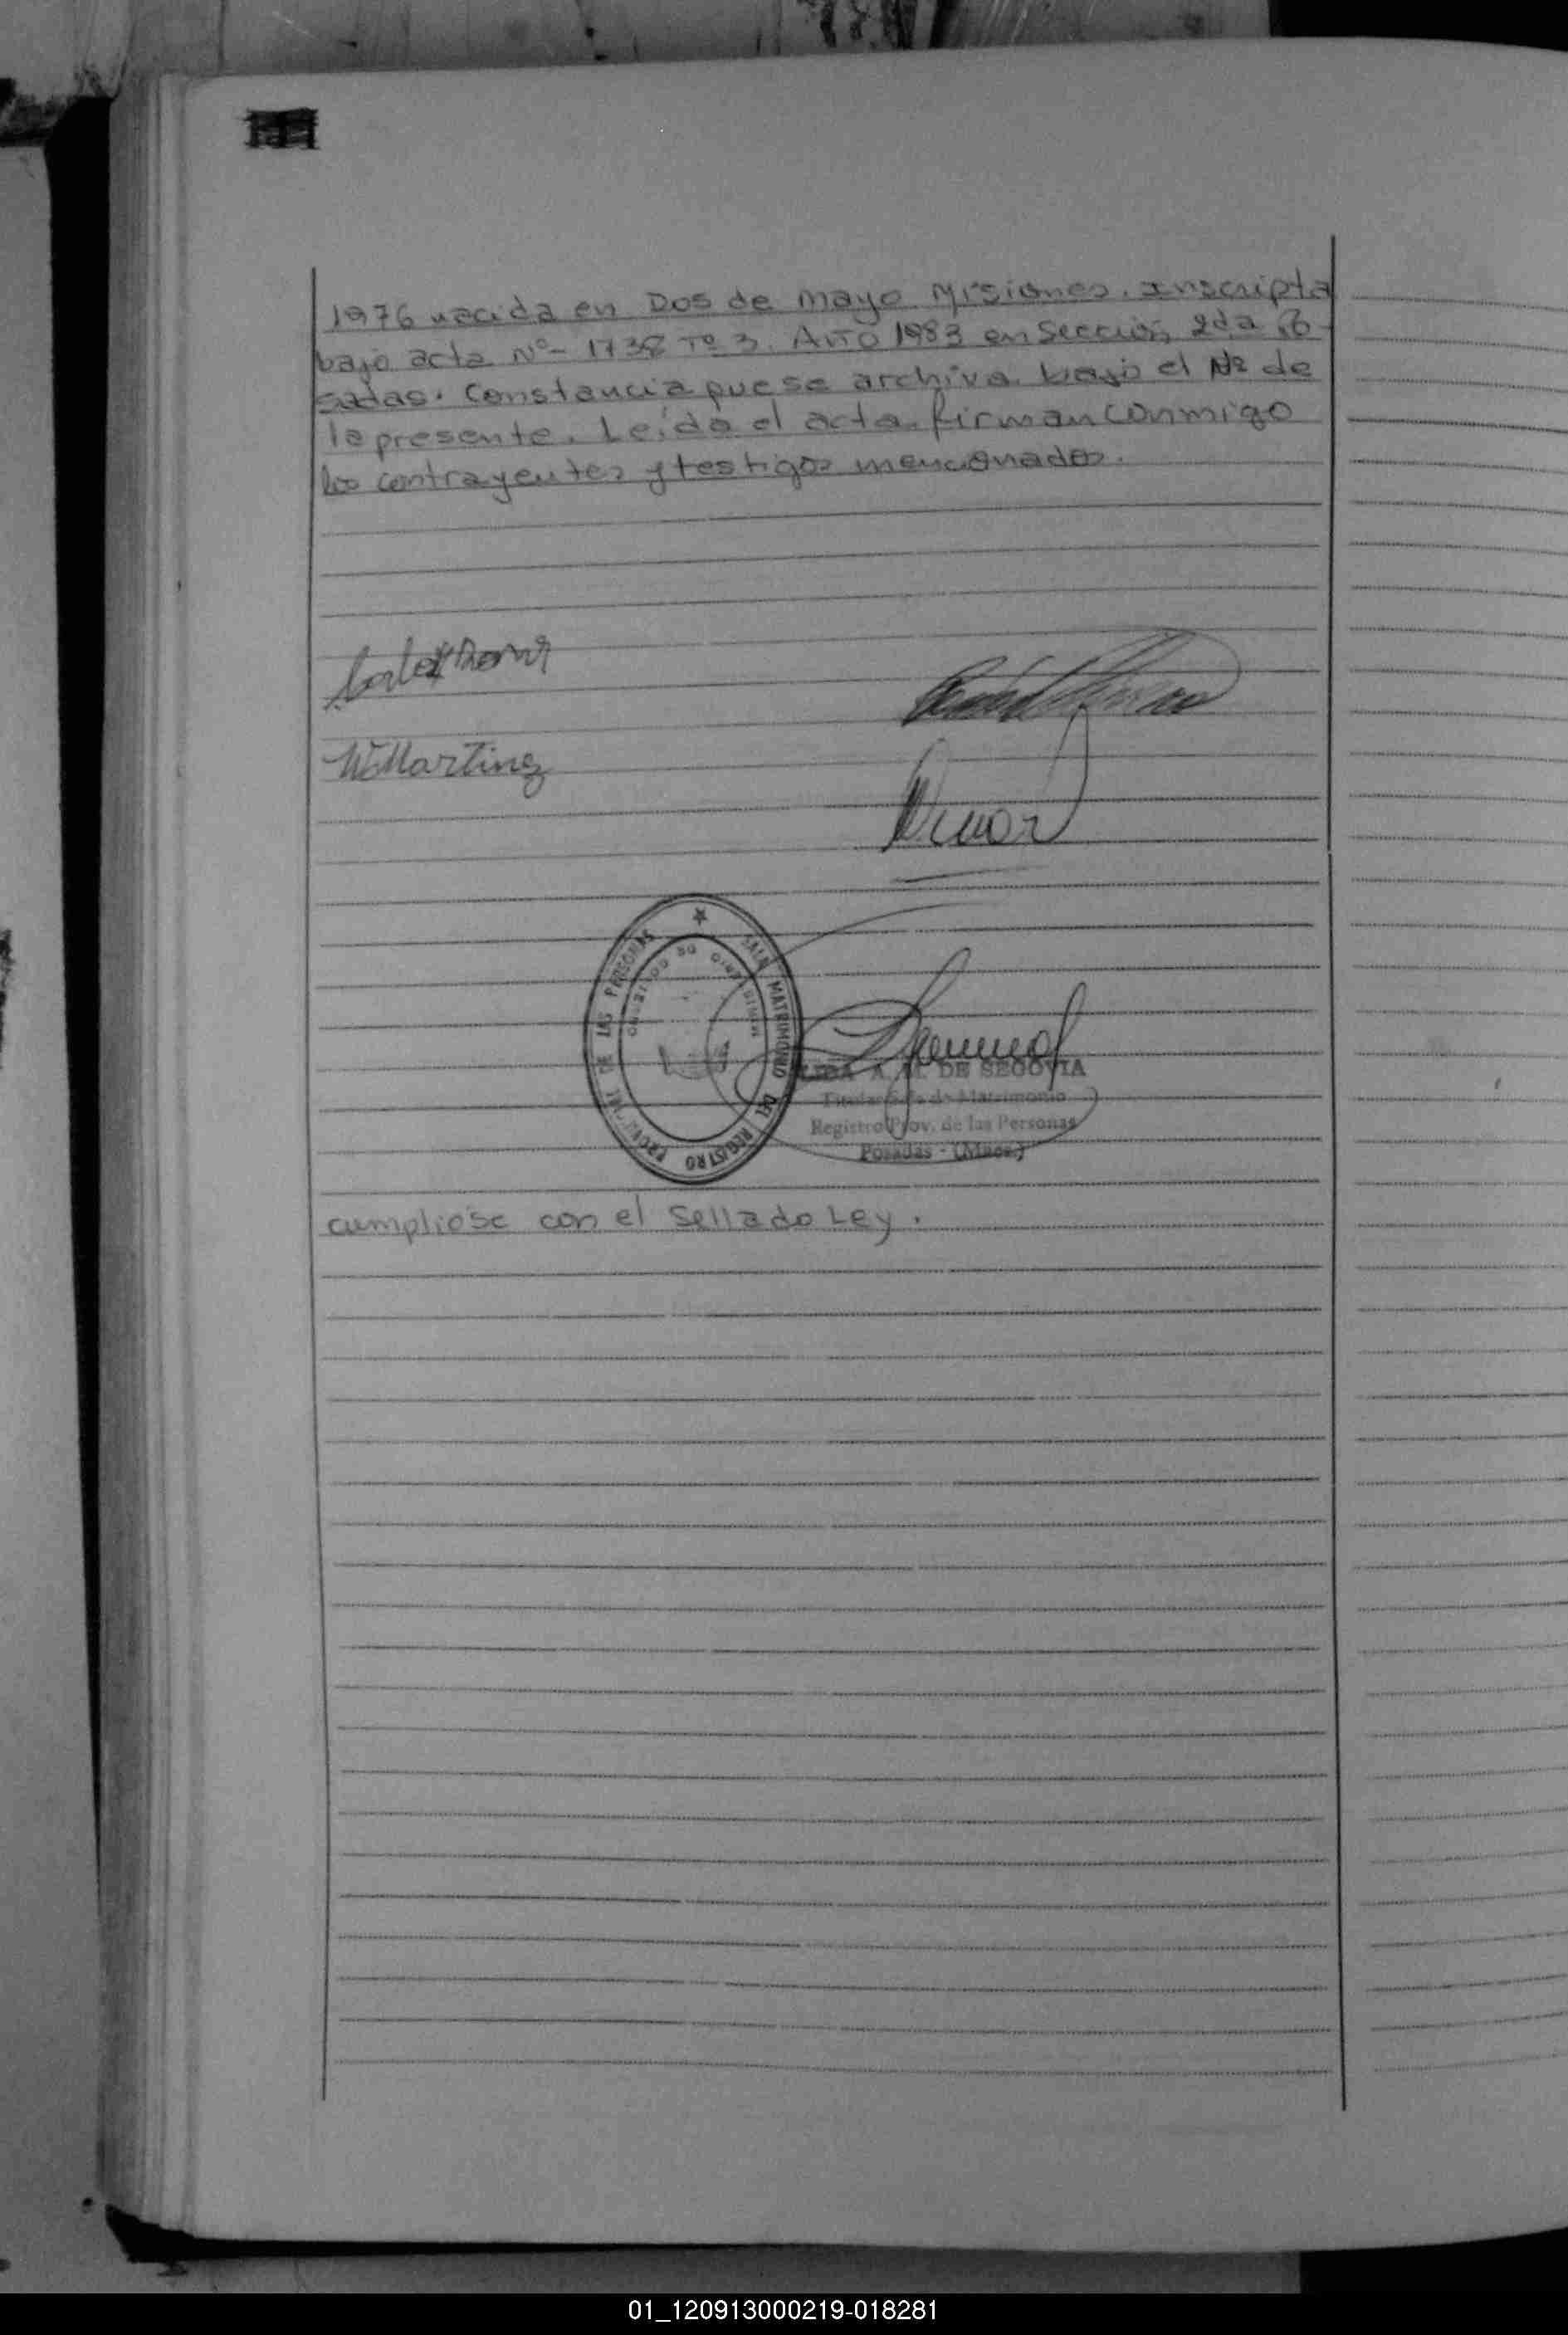 1976 nacida en Dos de mayo Misiones. inscripta
bajo acta Nº- 1738 Tº 3. AÑO 1983 en Sección 2da Po-
sadas. Constancia que se archiva bajo el Nº de
la presente. Leída el acta firman conmigo
los contrayentes y testigos mencionados.
Martinez
SALA MATRIMONIO DEL REGISTRO PROVINCIAL DE LAS PERSONAS
MINISTERIO DE GOBIERNO
DE SEGOVIA
Titular Sala de Matrimonio
Registro Prov. de las Personas
Posadas - (Mnes.)
cumpliose con el Sellado Ley.
01_120913000219-018281